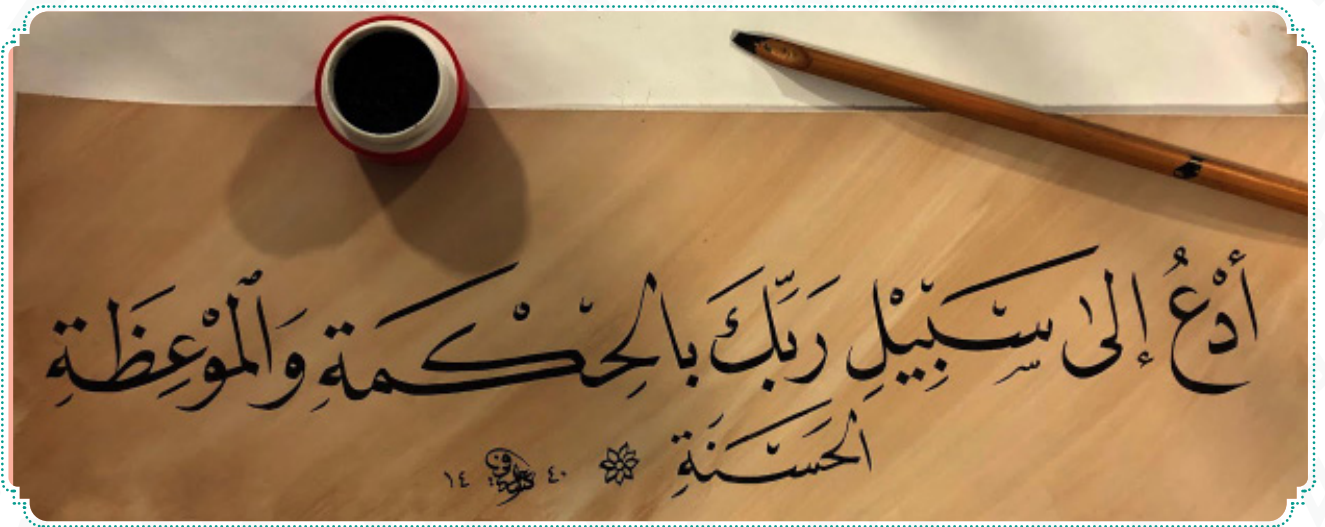 أُدْعُ إِلىٰ سَبِّيْلِ رَبِّكَ بالْحِكْمَةِ وَٱلْمَوْعِظَةِ
الْحَسَنَةِ
١٤ ٤٠